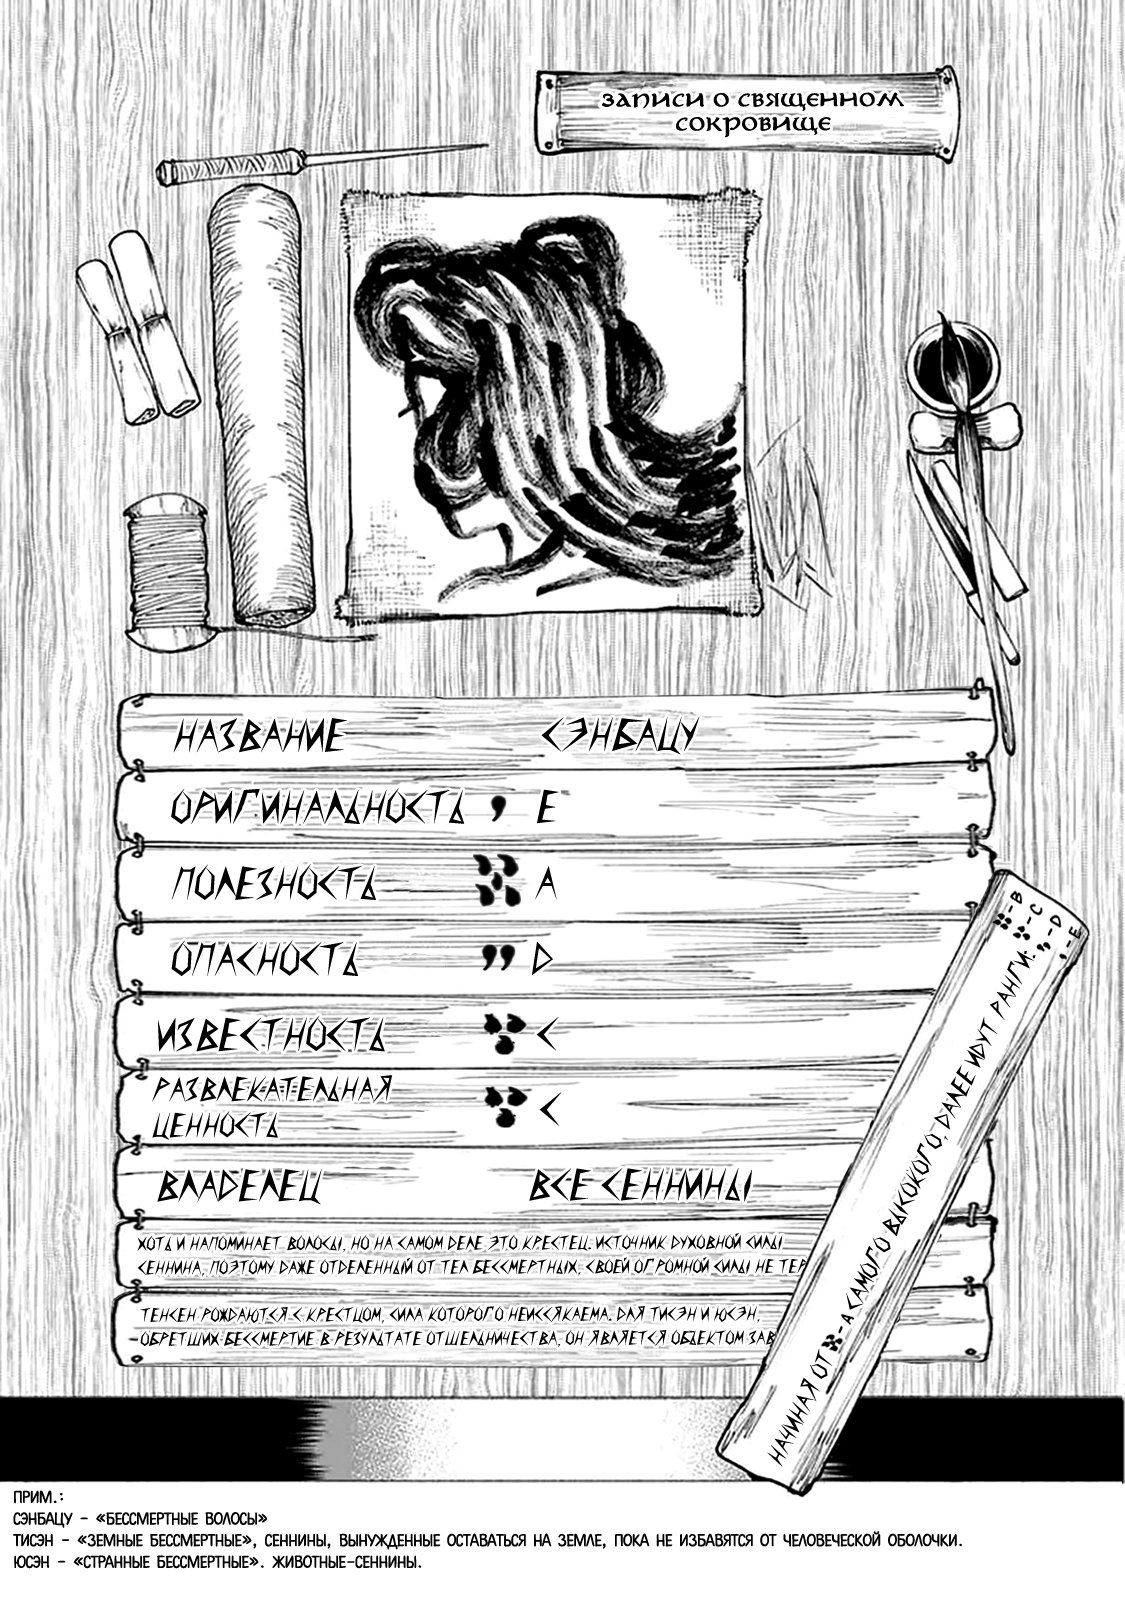 ЗАПИСИ О СВЯЩЕННОМ
СОКРОВИЩЕ
НАЗВАНИЕ СЭНБАЦУ
ОРИГИНАЛЬНОСТЬ E
ПОЛЕЗНОСТЬ A
ОПАСНОСТЬ D
ИЗВЕСТНОСТЬ C
РАЗВЛЕКАТЕЛЬНАЯ
ЦЕННОСТЬ C
ВЛАДЕЛЕЦ ВСЕ СЕННИНЫ
ХОТЬ И НАПОМИНАЕТ ВОЛОСЫ, НО НА САМОМ ДЕЛЕ ЭТО КРЕСТЕЦ. ИСТОЧНИК ДУХОВНОЙ СИЛЫ
СЕННИНА, ПОЭТОМУ ДАЖЕ ОТДЕЛЕННЫЙ ОТ ТЕЛ БЕССМЕРТНЫХ, СВОЕЙ ОГРОМНОЙ СИЛЫ НЕ ТЕР
ТЕНСЕН РОЖДАЮТСЯ С КРЕСТЦОМ, СИЛА КОТОРОГО НЕИССЯКАЕМА. ДЛЯ ТИСЭН И ЮСЭН,
ОБРЕТШИХ БЕССМЕРТИЕ В РЕЗУЛЬТАТЕ ОТШЕЛЬНИЧЕСТВА, ОН ЯВЛЯЕТСЯ ОБЪЕКТОМ ЗАВ
НАЧИНАЯ ОТ - A САМОГО ВЫСОКОГО, ДАЛЕЕ ИДУТ РАНГИ:
- B
- C
- D
- E
ПРИМ.:
СЭНБАЦУ - «БЕССМЕРТНЫЕ ВОЛОСЫ»
ТИСЭН - «ЗЕМНЫЕ БЕССМЕРТНЫЕ», СЕННИНЫ, ВЫНУЖДЕННЫЕ ОСТАВАТЬСЯ НА ЗЕМЛЕ, ПОКА НЕ ИЗБАВЯТСЯ ОТ ЧЕЛОВЕЧЕСКОЙ ОБОЛОЧКИ.
ЮСЭН - «СТРАННЫЕ БЕССМЕРТНЫЕ». ЖИВОТНЫЕ-СЕННИНЫ.